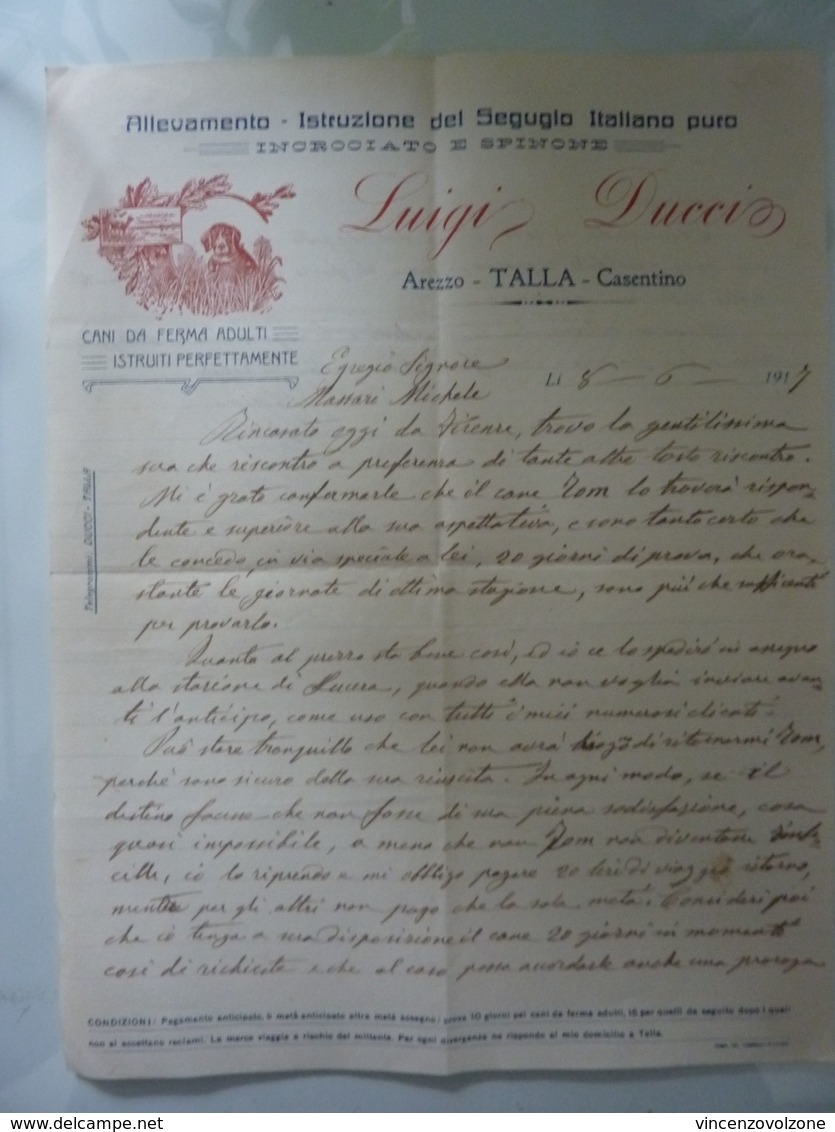 Allevamento - Istruzione del Segugio Italiano puro
INCROCIATO E SPINONE
Luigi Ducci
Arezzo - TALLA - Casentino
CANI DA FERMA ADULTI
ISTRUITI PERFETTAMENTE
Telegrammi: DUCCI - TALLA
Egregio Signore
Massari Michele
Li 8 - 6 - 1917
Rincasato oggi da Firenze, trovo la gentilissima
sua che riscontro a preferenza di tante altre tosto riscontro.
Mi è grato confermarle che il cane Tom lo troverà rispon-
dente e superiore alla sua aspettativa, e sono tanto certo che
le concedo, in via speciale a lei, 20 giorni di prova, che ora,
stante le giornate di ottima stagione, sono più che sufficenti
per provarlo.
Quanto al prezzo sta bene così, ed io ce lo spedirò in assegno
alla stazione di Lucera, quando ella non voglia inviare avan-
ti l'anticipo, come uso con tutti i miei numerosi clienti.
Può stare tranquillo che lei non avrà di ritornarmi Tom,
perchè sono sicuro della sua riuscita. In ogni modo, se il
destino facesse che non fosse di sua piena sodisfazione, cosa
quasi impossibile, a meno che non Tom non diventasse imbe-
cille, io lo riprendo e mi obbligo pagare 20 lire di viaggio ritorno,
mentre per gli altri non pago che la sola metà. Consideri poi
che io tengo a sua disposizione il cane 20 giorni in momenti
così di richieste e che al caso posso accordarle anche una proroga
CONDIZIONI: Pagamento anticipato, o metà anticipato altra metà assegno; prova 10 giorni pei cani da ferma adulti, 15 per quelli da seguito dopo i quali
non si accettano reclami. La merce viaggia a rischio del mittente. Per ogni divergenza ne rispondo al mio domicilio a Talla.
delcampe.net
vincenzovolzone